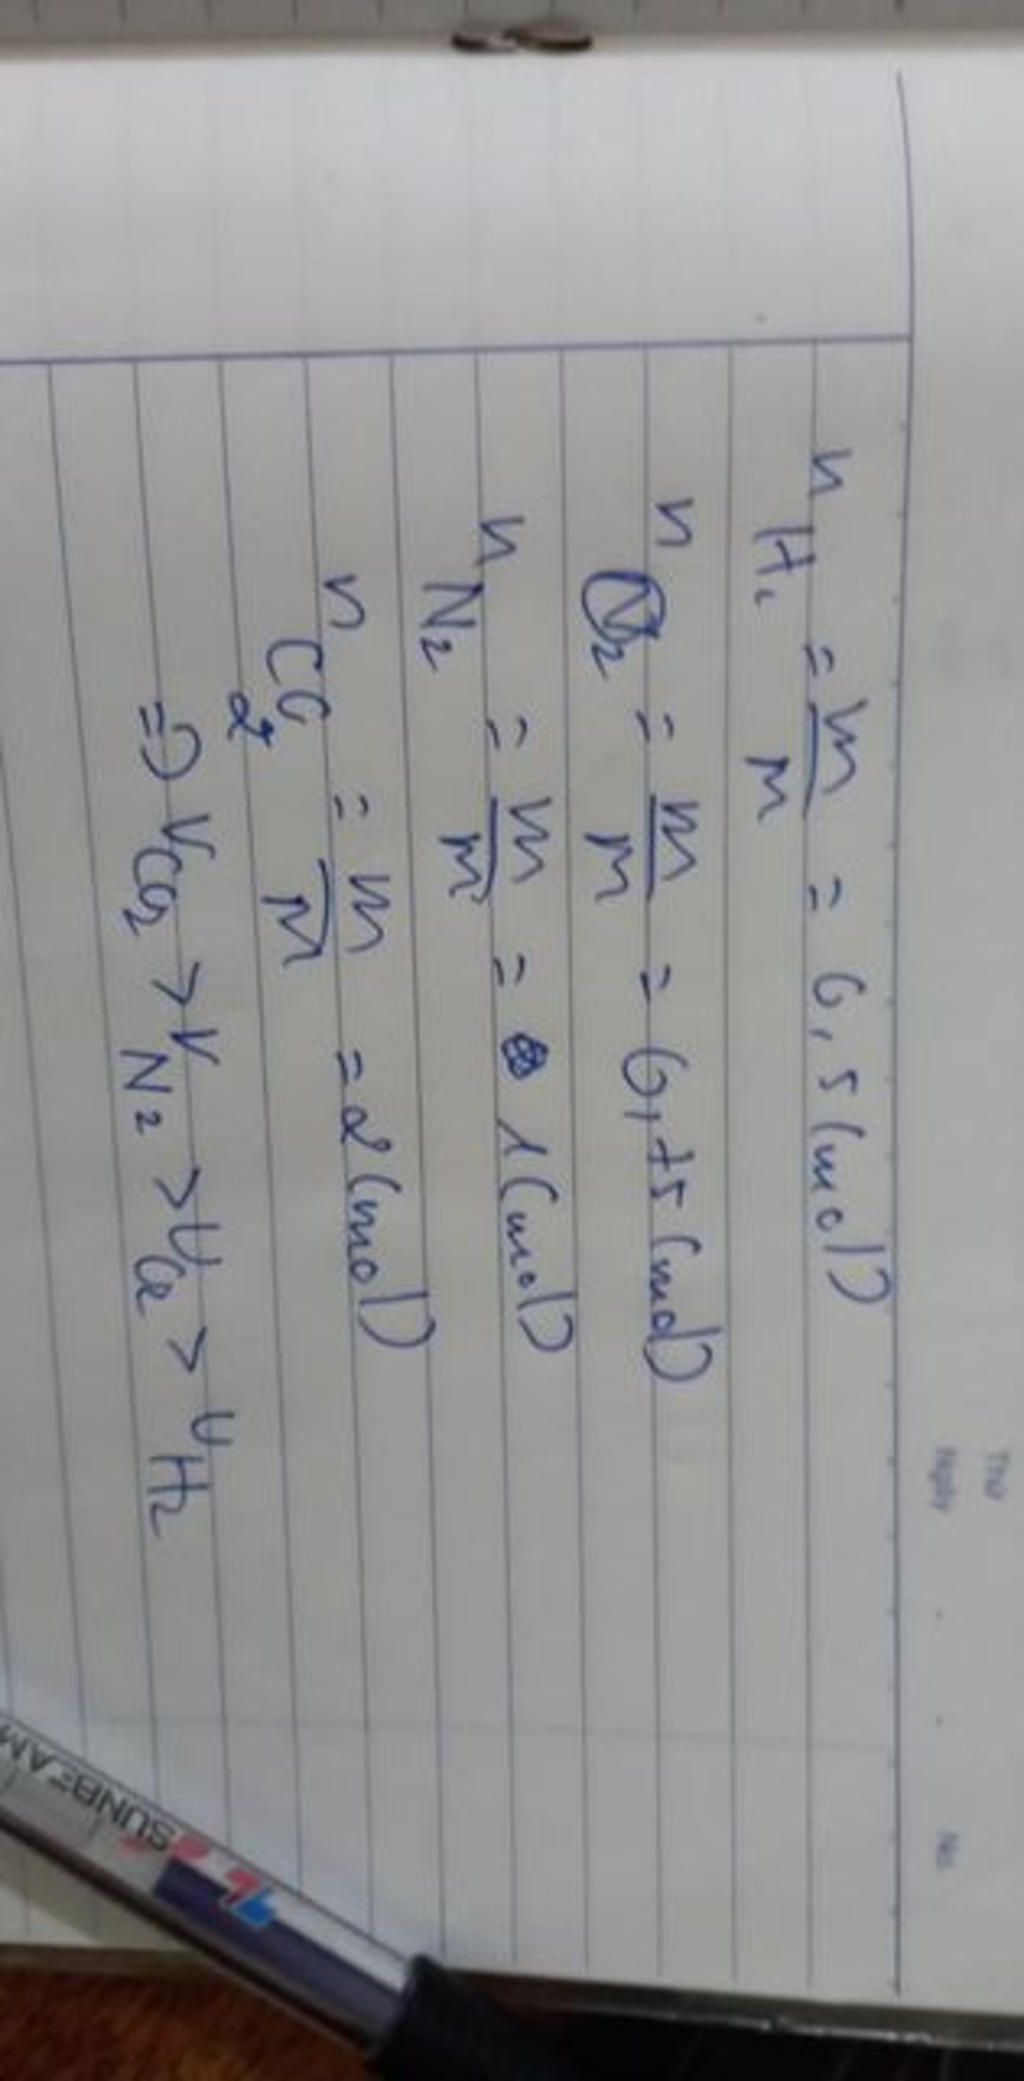 Thứ
Ngày . . No.
n H₂ = m/M = 0,5 (mol)
n O₂ = m/M = 0,75 (mol)
n N₂ = m/M = 1 (mol)
n CO₂ = m/M = 2 (mol)
=> V CO₂ > V N₂ > V O₂ > V H₂
SUNBEAM